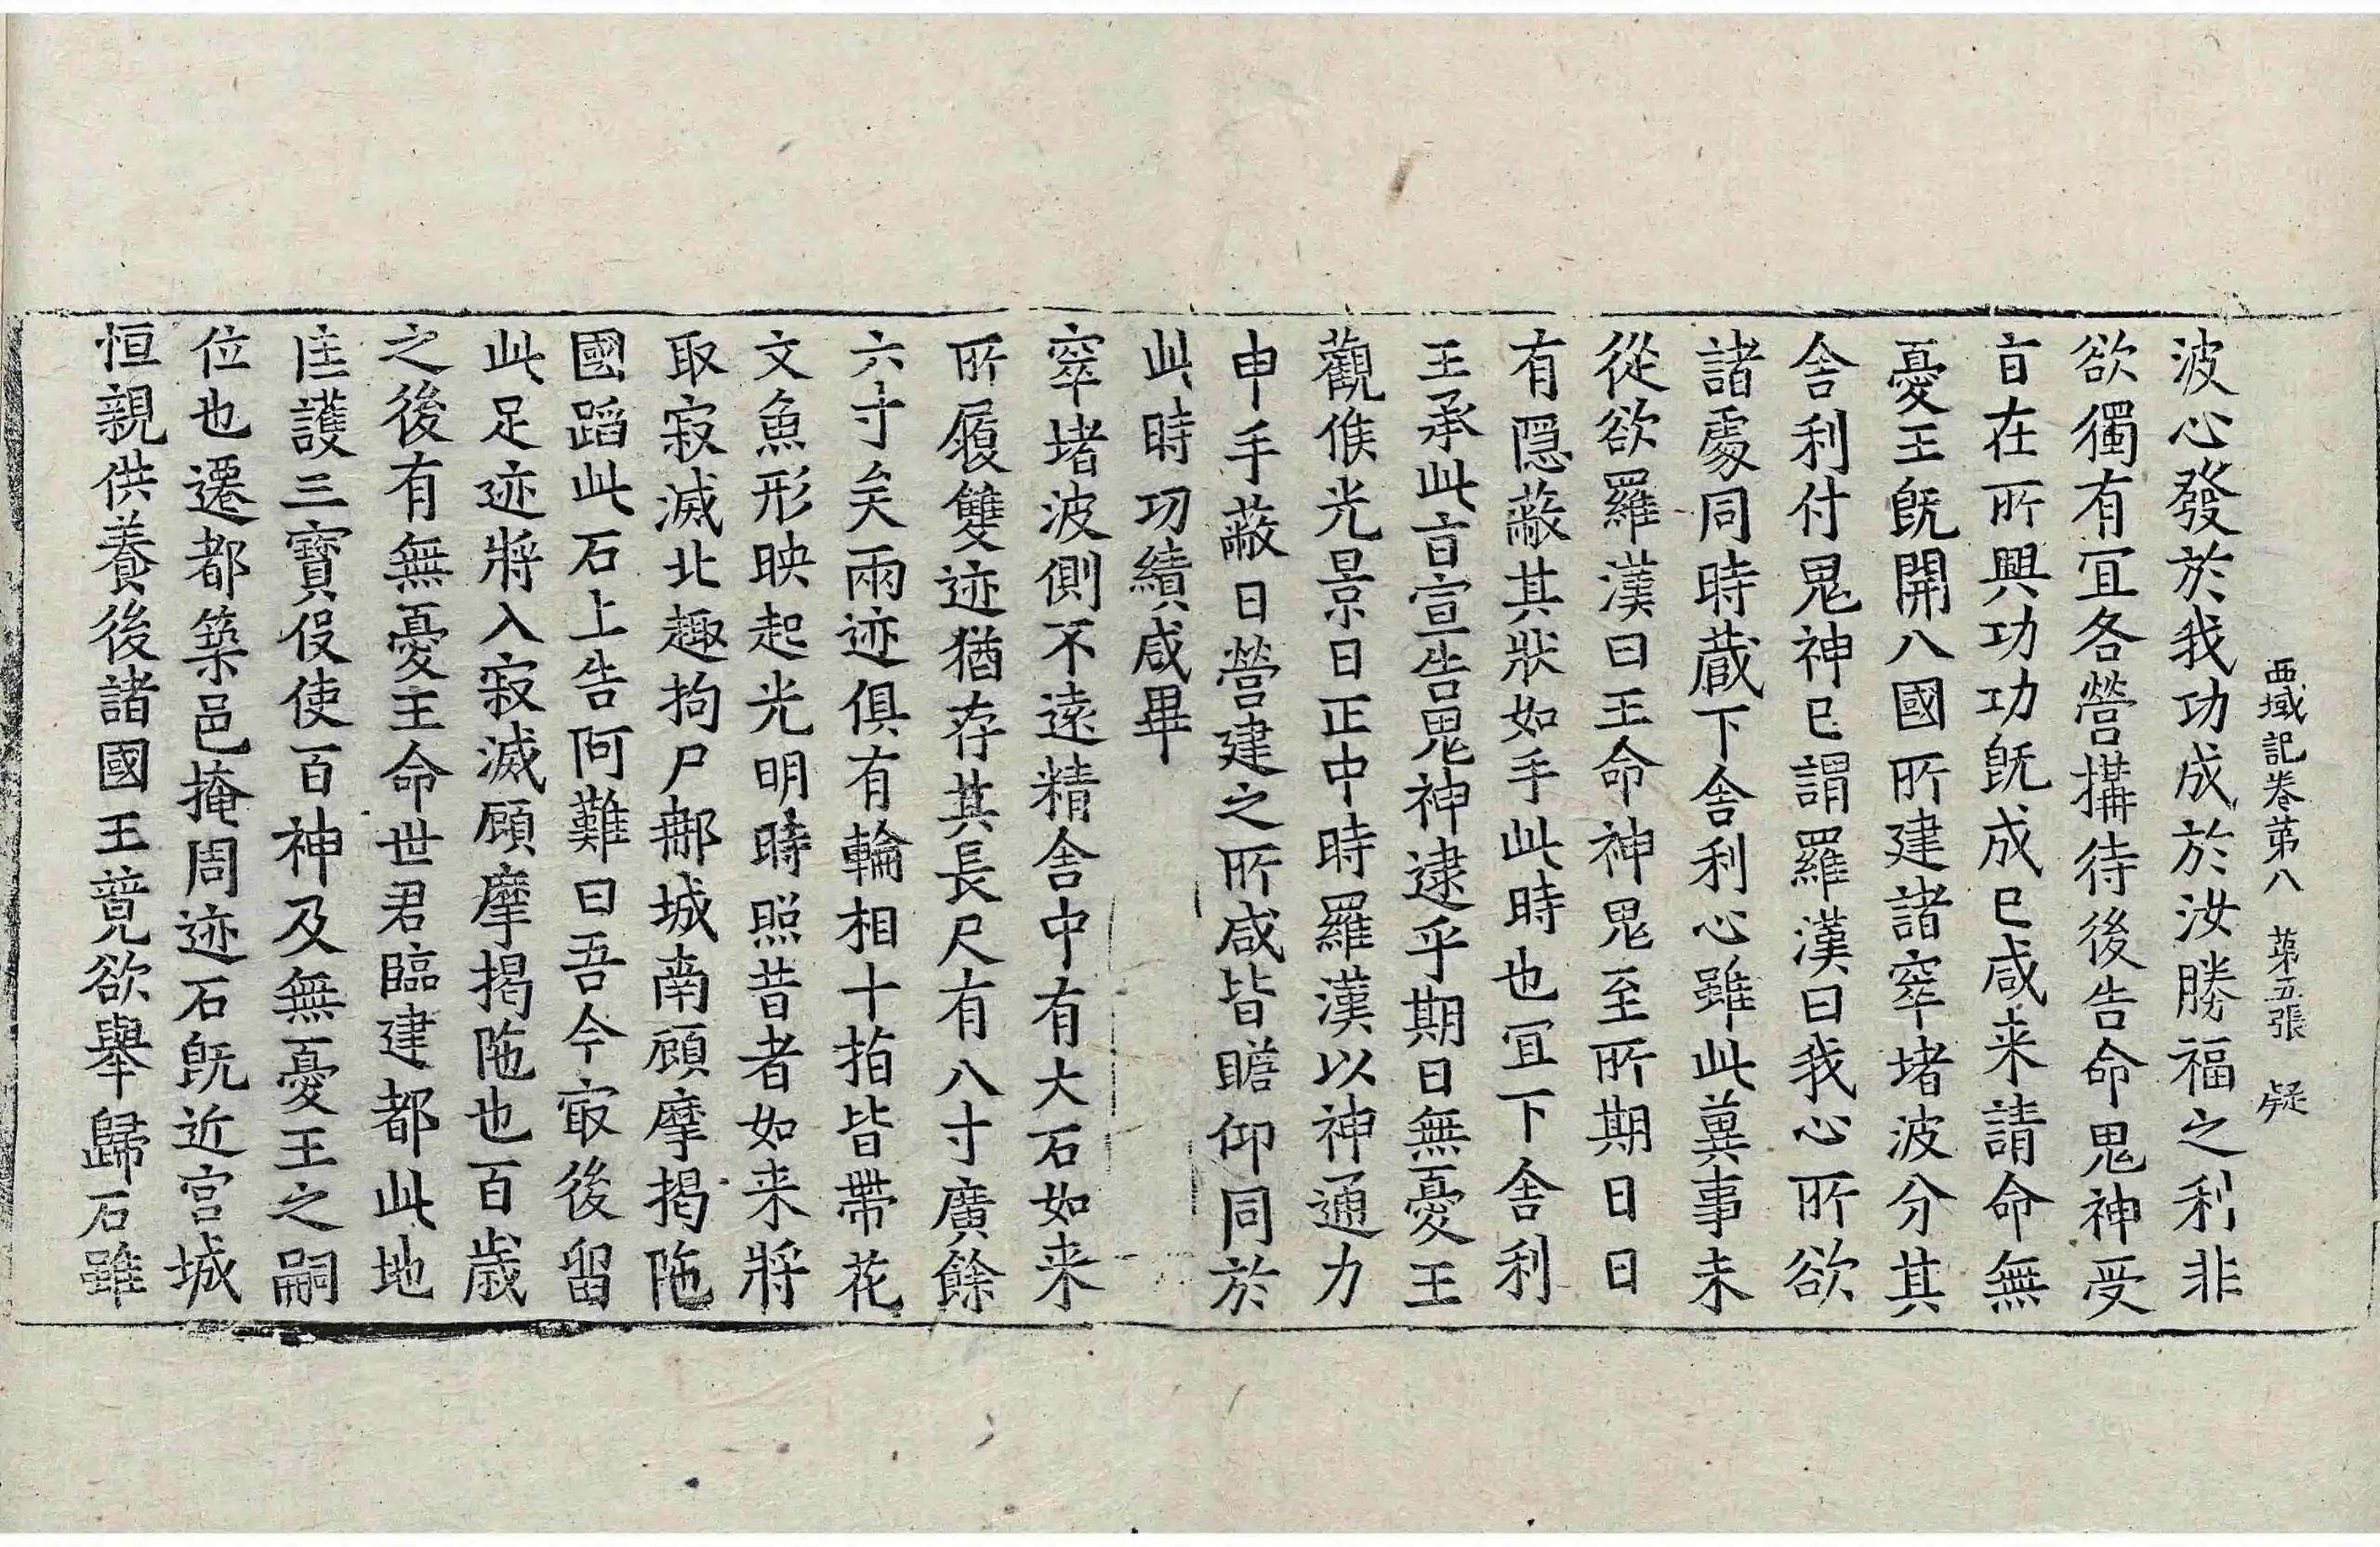 西域記卷第八　第五張　疑
波心發於我功成於汝勝福之利非
欲獨有宜各營搆待後告命鬼神受
旨在所興功功旣成已咸来請命無
憂王旣開八國所建諸窣堵波分其
舍利付鬼神已謂羅漢曰我心所欲
諸處同時藏下舍利心雖此兾事未
從欲羅漢曰王命神鬼至所期日日
有隱蔽其狀如手此時也宜下舍利
王承此旨宣告鬼神逮乎期日無憂王
觀候光景日正中時羅漢以神通力
申手蔽日營建之所咸皆瞻仰同於
此時功績咸畢
窣堵波側不遠精舍中有大石如来
所履雙迹猶存其長尺有八寸廣餘
六寸矣兩迹俱有輪相十指皆帶花
文魚形映起光明時照昔者如来將
取寂滅北趣拘尸郍城南顧摩揭陁
國蹈此石上告阿難曰吾今㝡後留
此足迹將入寂滅顧摩揭陁也百歲
之後有無憂王命世君臨建都此地
匡護三寶役使百神及無憂王之嗣
位也遷都築邑掩周迹石旣近宮城
恒親供養後諸國王竟欲舉歸石雖